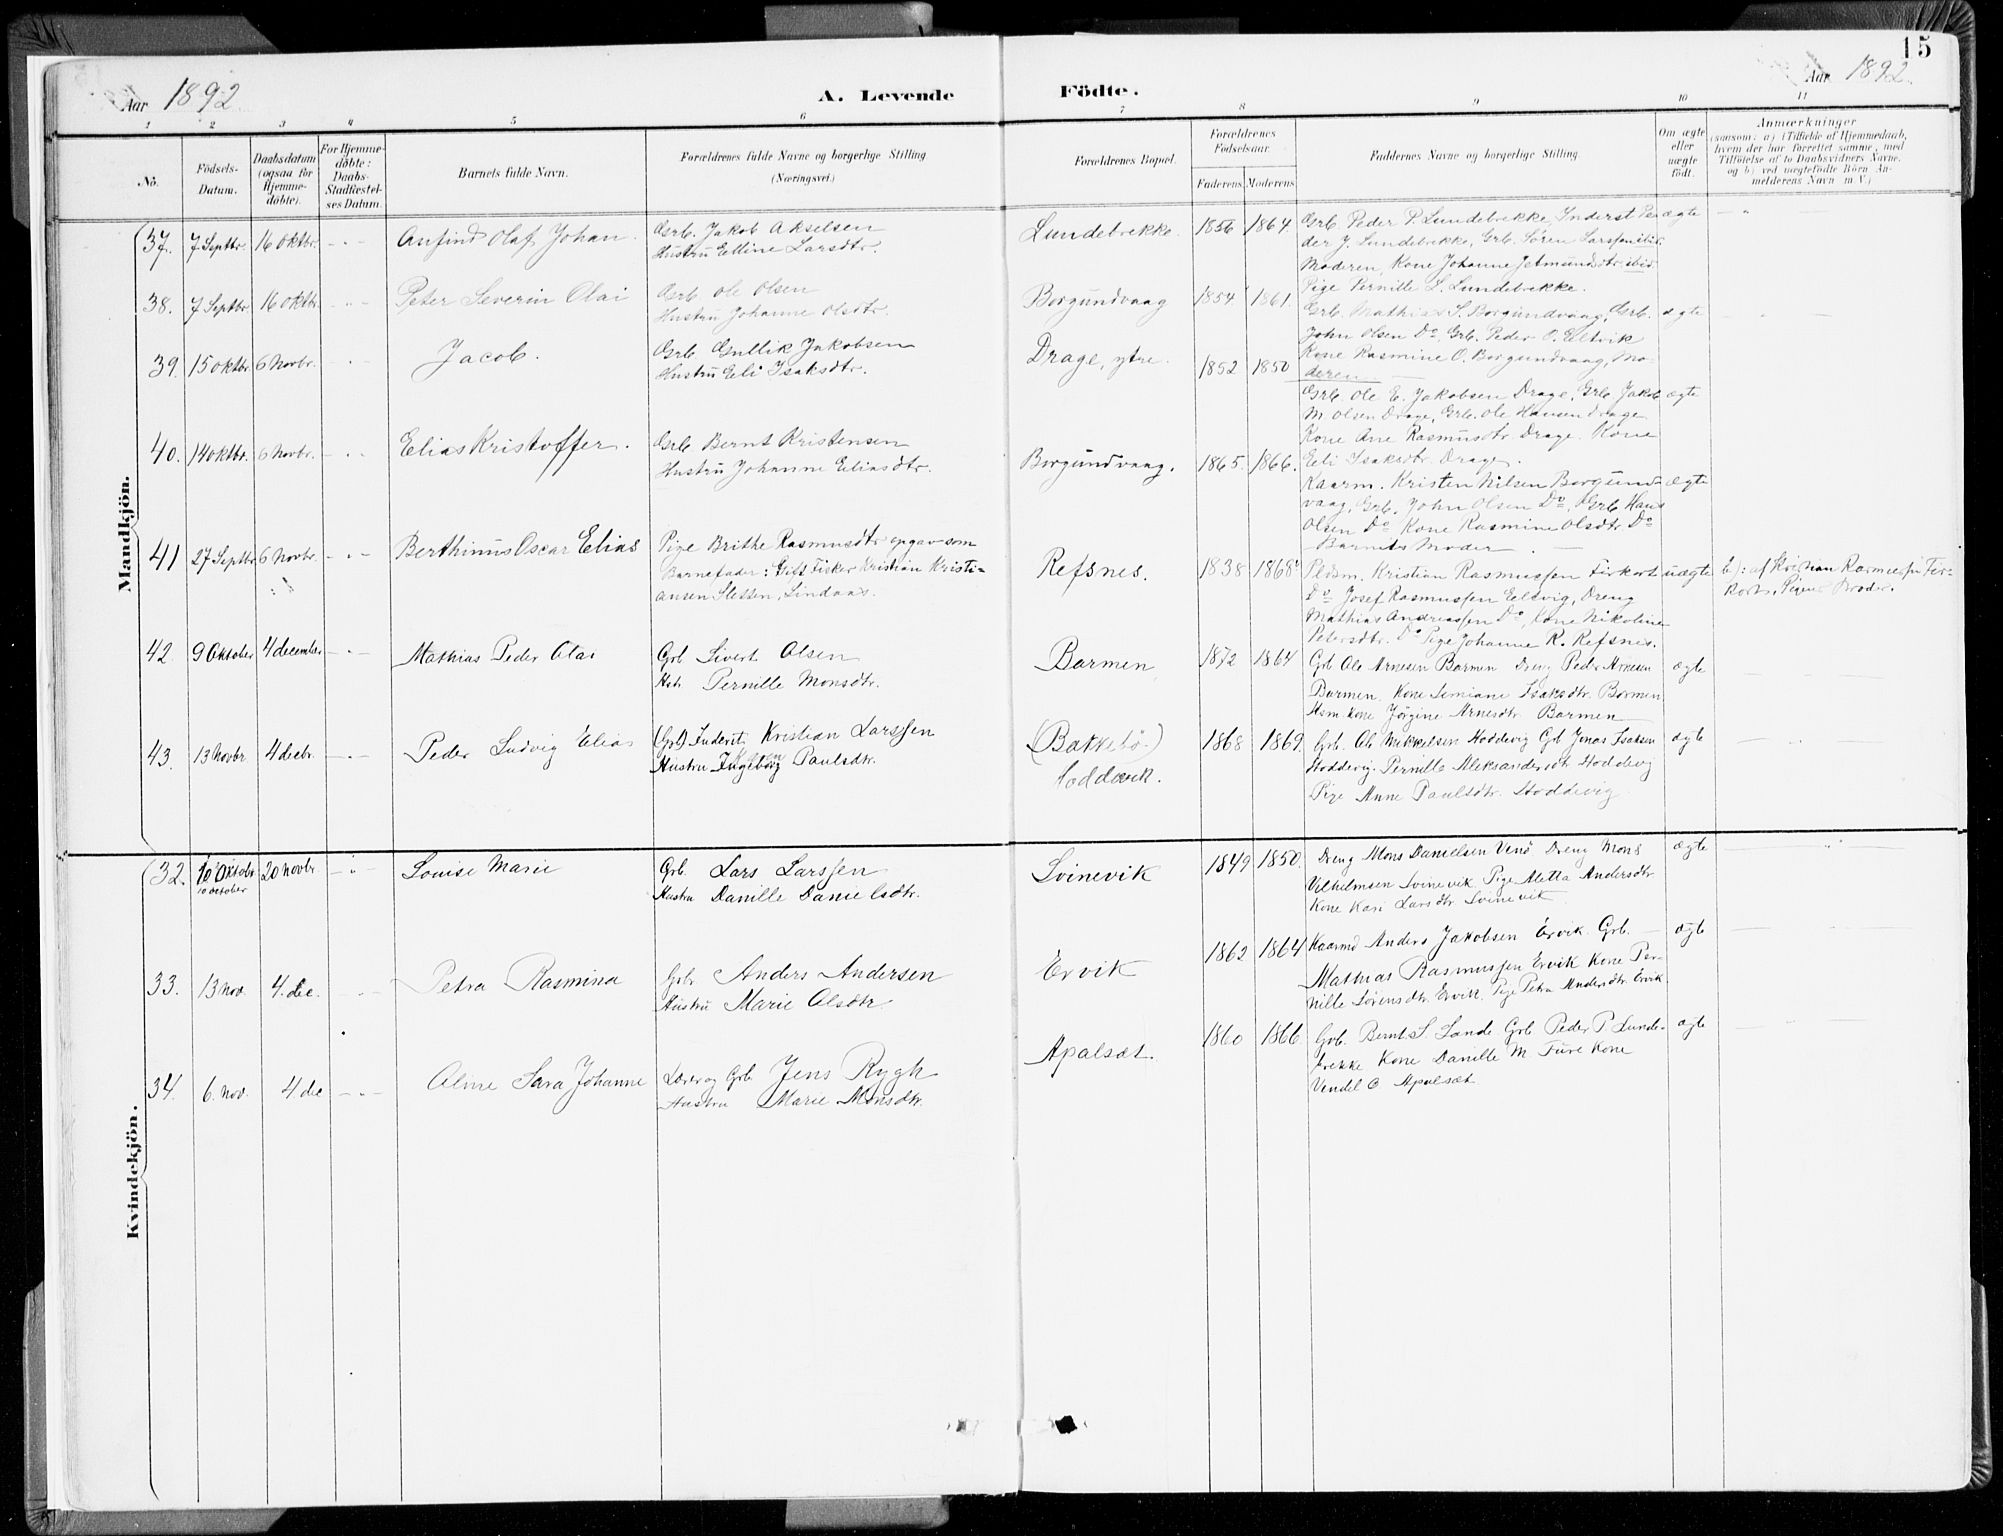 15
Aar 1892
A. Levende Födte.
Aar 1892
1 2 3 4 5 6 7 8 9 10 11
No.
Födsels-Datum.
Daabsdatum (ogsaa for Hjemme-döbte).
For Hjemme-döbte: Daabs-Stadfæstel-ses Datum.
Barnets fulde Navn.
Forældrenes fulde Navne og borgerlige Stilling
(Næringsvei.)
Forældrenes Bopæl.
Forældrenes Födselsaar.
Faderens Moderens
Faddernes Navne og borgerlige Stilling.
Om ægte eller uægte födt.
Anmærkninger
(saasom: a) i Tilfælde af Hjemmedaab,
hvem der har forrettet samme, med
Tilföielse af to Daabsvidners Navne.
og b) ved uægtefödte Börn An-
melderens Navn m. V.)
Mandkjön.
37. 7 Septbr. 16 Oktbr. Anfind Olaf Johan.
Grb. Jakob Akselsen
Hustru Elline Larsdtr.
Lundebrekke. 1856 1864
Grb. Peder P. Lundebrekke, Inderst Pe-
der J. Lundebrekke, Grb. Sören Larssen ibid.
Moderen, Kone Johanne Jetmundsdtr. ibid.
Pige Pernille L. Lundebrekke.
ægte
38. 7 Septbr. 16 Oktbr. Peter Severin Olai
Grb. Ole Olsen
Hustru Johanne Olsdtr.
Borgundvaag 1854 1861.
Grb. Mathias S. Borgundvaag, Grb.
John Olsen Do, Grb. Peder O. Eltvik
Kone Rasmine O. Borgundvaag, Mo-
deren
ægte
39. 15 Oktbr. 6 Novbr. Jacob.
Grb. Gullik Jakobsen
Hustru Eli Isaksdtr.
Drage, ytre. 1852 1850
Grb. Ole E. Jakobsen Drage, Grb. Jakob
M. Olsen Drage, Grb. Ole Hansen Drage
Kone Ane Rasmusdtr. Drage. Kone
Eli Isaksdtr. Drage.
ægte
40. 14 Oktbr. 6 Novbr. Elias Kristoffer.
Grb. Bernt Kristensen
Hustru Johanne Eliasdtr.
Borgundvaag. 1865. 1866.
Kaarm. Kristen Nilsen Borgund-
vaag, Grb. John Olsen Do, Grb. Hans
Olsen Do Kone Rasmine Olsdtr. Do
Barnets Moder.
ægte
41 27 Septbr. 6 Novbr. Berthinius Oscar Elias
Pige Brithe Rasmusdtr opgav som
Barnefader: Gift Fisker Kristian Kristi-
ansen Slessen, Lindaas.
Refsnes. 1838 1868
Pldsm. Kristian Rasmussen Firkort
Do Josef Rasmussen Eltvig, Dreng
Mathias Andreassen Do, Kone Nikoline
Petersdtr. Do Pige Johanne R. Refsnes.
uægte
b): af Kristian Rasmussen Fir-
kort, Pigens Broder.
42 9 Oktober 4 december Mathias Peder Olai
Grb Sivert Olsen
Hstr Pernille Monsdtr.
Barmen 1872 1864
Grb Ole Arnesen Barmen Dreng Peder Arnesen
Barmen Kone Semiane Isaksdtr. Barmen
Hsm. Kone Jörgine Arnesdtr Barmen
ægte
43. 13 Novbr. 4 decbr. Peder Ludvig Elias
(Grb) Inderst Kristian Larssen
Hustru Ingeborg Paulsdtr.
(Bakkebö.) Hoddevik. 1868 1869
Grb. Ole Mikkelsen Hoddevig Grb Jonas Isaksen
Hoddevig. Pernille Aleksandersdtr Hoddevig
Pige Anne Paulsdtr. Hoddevig
ægte
Kvindekjön.
32. 10 Oktobr. 20 Novbr Louise Marie
10 October
Grb. Lars Larssen
Hustru Danille Danielsdtr.
Svinevik 1849 1850.
Dreng Mons Danielsen Venö Dreng Mons
Vilhelmsen Svinevik Pige Aletta Andersdtr
Kone Kari Larsdtr Svinevik
ægte
33. 13 nov. 4. dec. Petra Rasmina
Grb. Anders Andersen
Hustru Marie Olsdtr.
Ervik 1862 1864
Kaarmd Anders Jakobsen Ervik. Grb.
Mathias Rasmussen Ervik Kone Per-
nille Sörensdtr. Ervik. Pige Petra Andersdtr. Ervik.
ægte
34. 6. nov. 4 dec Aline Sara Johanne
Lærer og Grb. Jens Rygh
Hustru Marie Monsdtr.
Apalset. 1860 1866
Grb. Bernt S. Sande. Grb Peder P. Lunde-
brekke Kone Danille M. Fure Kone
Vendel O Apalset
ægte